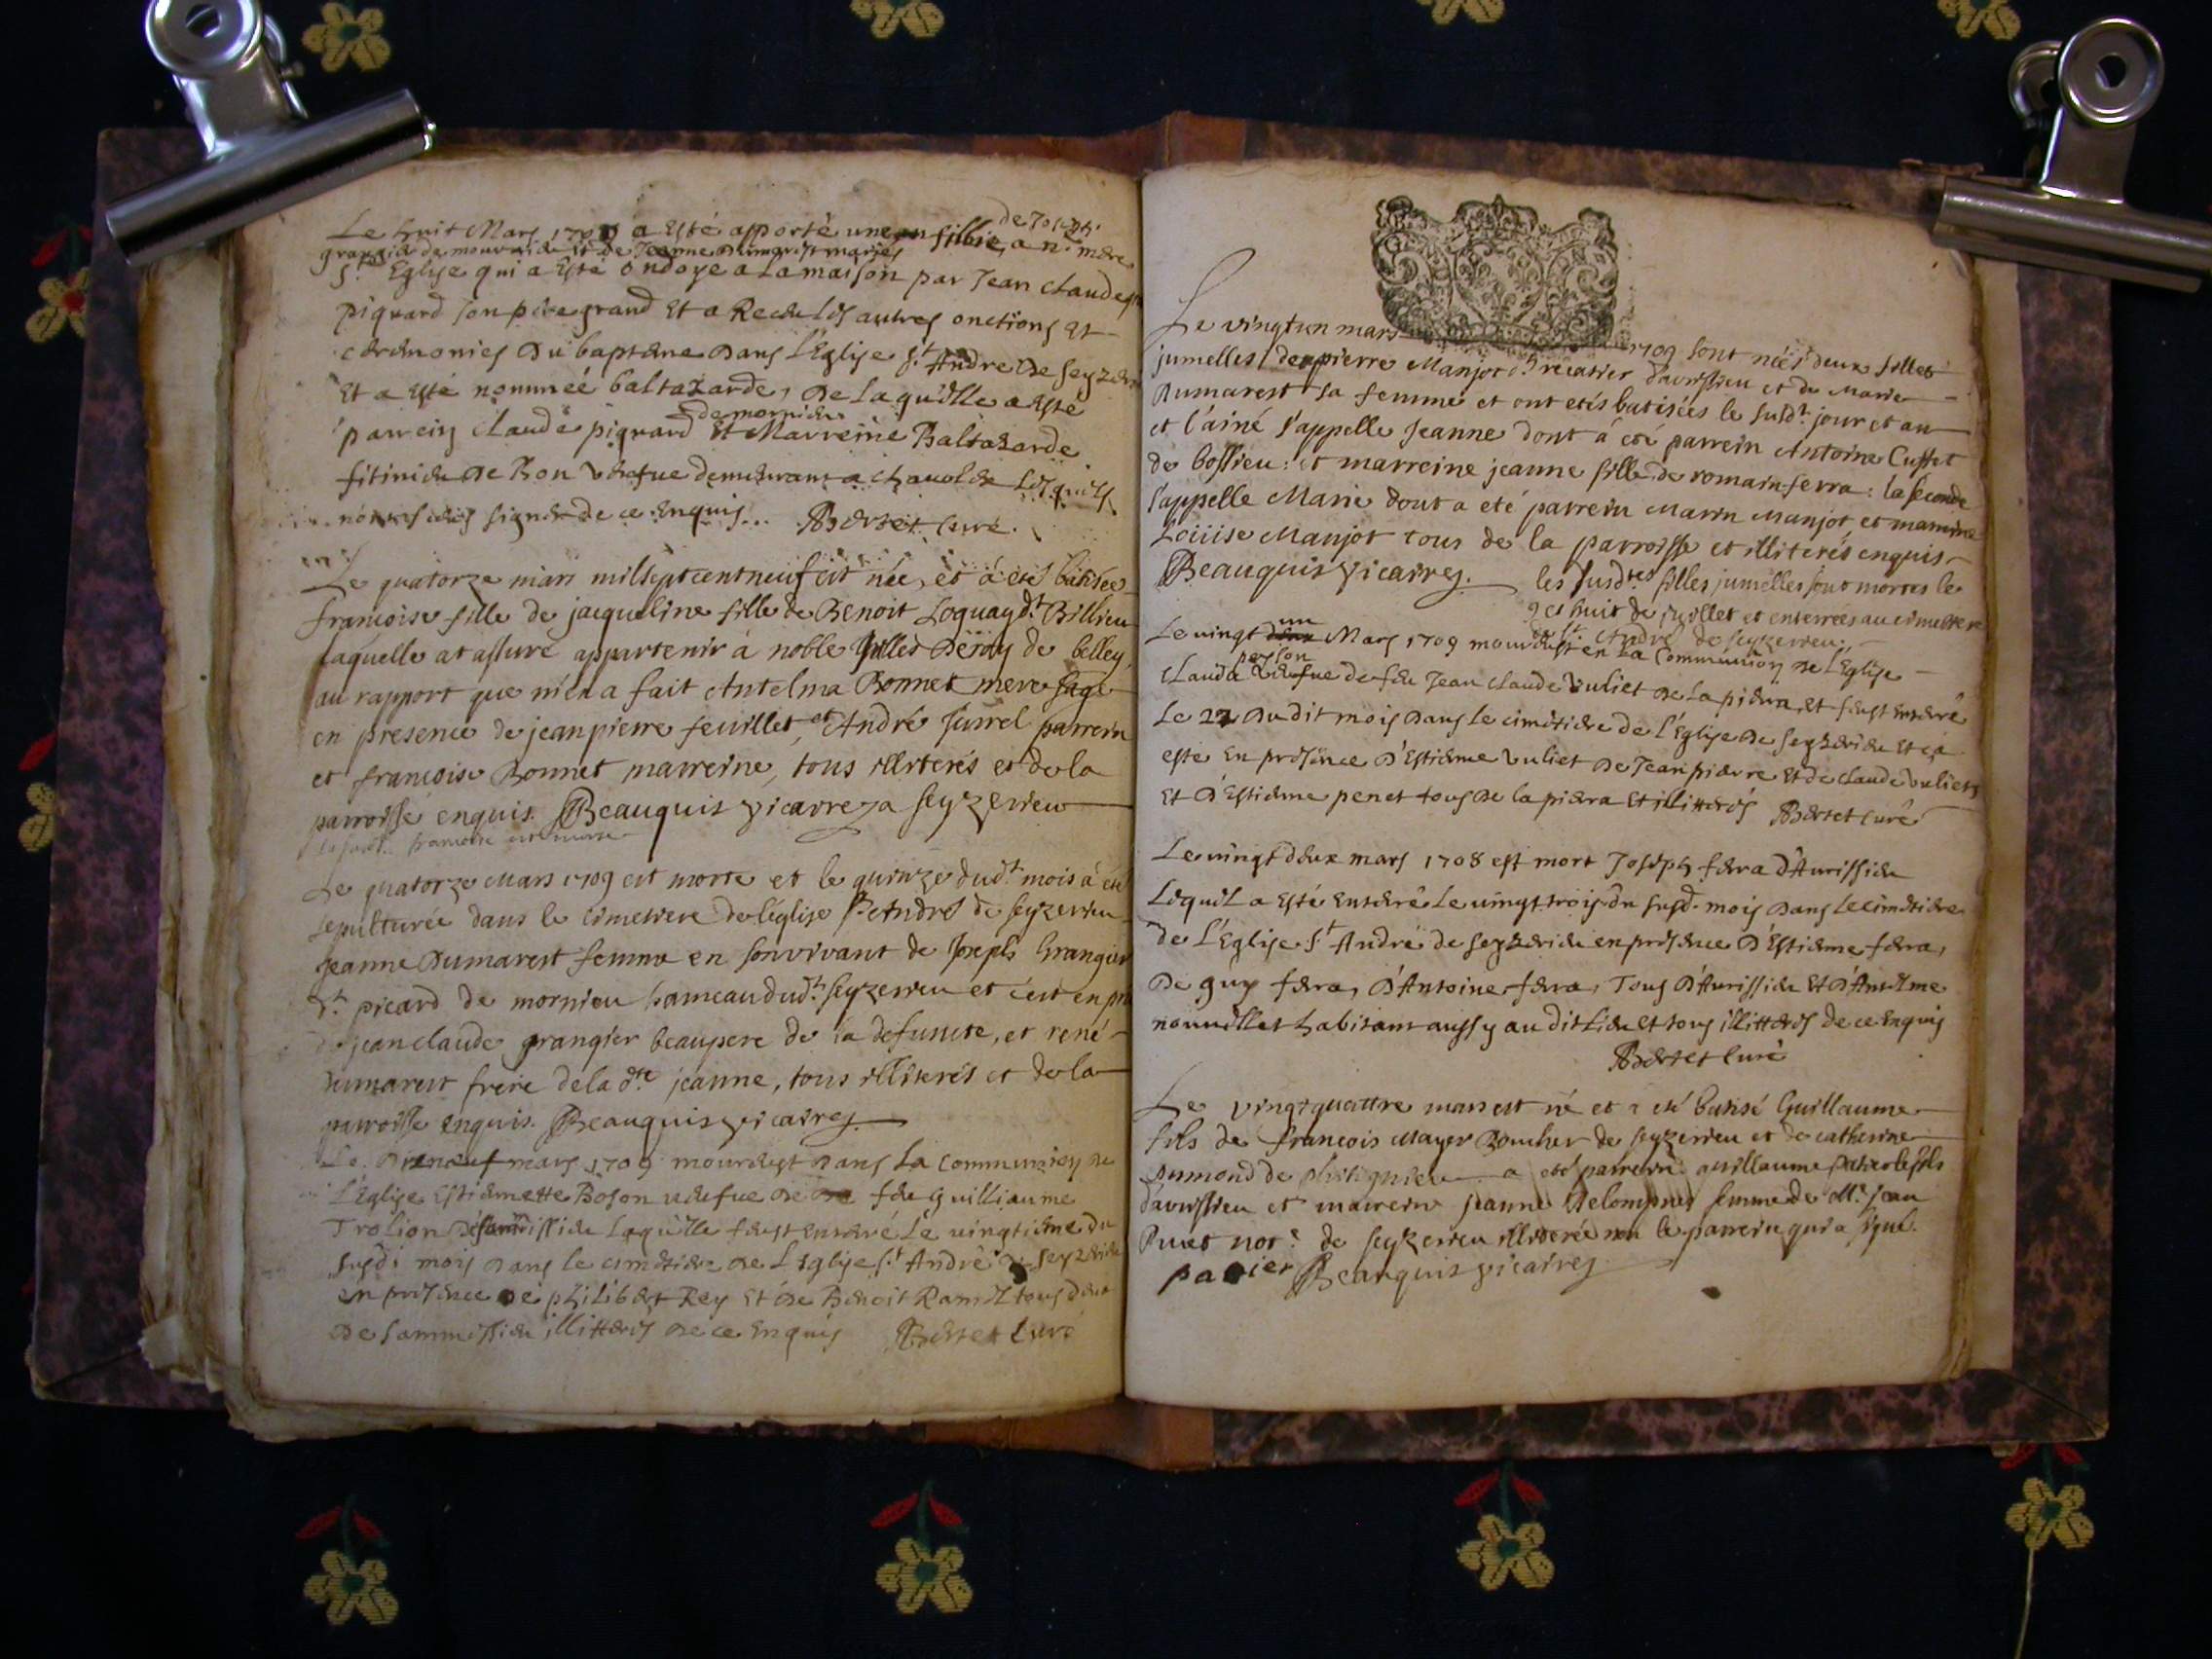 Le huit Mars 1709 a Esté apporté une fillie de Joseph a nre mere
grangier de mournieu et de Jeanne dumarest mariés
Ste Eglise qui a Esté ondoyé a La maison par Jean claude
piquard son pere grand Et a Receu Les autres onctions Et
ceremonies Du baptesme Dans L'Eglise St André De Seyzerieu
Et a Esté nommeé baltazarde, De laquelle a Esté
parrein claude piquard de mornieu Et Marreine Baltazarde
De Bon Veufue demeurant a Lesquels
signer de ce Enquis... Bertet curé.
Le quatorze mars mil sept cent neuf est née, et á eté batisée
francoise fille de jacqueline fille de Benoit Loquay dt Billieu
laquelle at assuré appartenir á noble Gilles Deroy de belley,
au rapport que m'en a fait Antelma Bonnet mere sage
en presence de jean pierre feuillet, et André Jurrel parrein
et francoise Bonnet marreine, tous illiterés et de la
parroisse enquis. Beauquis vicaire a Seyzerieu
francoise est morte
Le quatorze Mars 1709 est morte et le quinze dudt mois á eté
sepulturée dans le cimetiere de l'église St André de Seyzerieu
Jeanne Dumarest femme en son vivant de Joseph Grangier
dt picard de mornieu hameau dudt Seyzerieu et c'est en
de jean claude grangier beaupere de la defuncte, et rené
dumarest frere de la dte jeanne, tous illiterés et de la
parroisse enquis. Beauquis vicaire
Le Dixneuf mars 1709 mourust Dans La Communion De
L'Eglise Estiennette Boson veufue De feu Guilliaume
Trolion laquelle fust enterré Le vingtieme du
susdi mois Dans le cimetiere De L'Eglise St André De Seyzerieu
en presence De philibert Rey Et De Benoit Ramel tous deux
De Sammissieu illitterés De ce Enquis Bertet Curé
Le vingt un mars 1709 sont néés deux filles
jumelles de pierre Manjot dt recatier d'avrissieu et de Marie
Dumarest sa femme et ont etés batisées le susdt jour et an
et l'ainé s'appelle Jeanne dont á eté parrein Antoine Cuffet
de bossieu: et marreine jeanne fille de romain ferra: la seconde
s'appelle Marie dont a eté parrein Marin Manjot, et marreine
Loüise Manjot tous de la parroisse et illiterés enquis
Beauquis vicaire. les susdtes filles jumelles sont mortes le
huit de juillet et enterrées au cimetiere
de St André de Seyzerieu.
Le vingt deux un Mars 1709 mourust en La Communion De L'Eglise
Clauda peyson Veufue de feu Jean Claude Vuliet De La piera, et fust enterré
Le 22 Dudit mois Dans Le cimetiere de L'Eglise De Seyzerieu Et ça
esté En presence D'Estienne Vuliet De Jean pierre Et De Claude Vuliets
Et D'Estienne penet tous De la piera Et illitterés Bertet curé
Le vingt deux mars 1708 est mort Joseph fera D'Aurissieu
Lequil a Esté Enterré Le vingt trois du susd. mois Dans Le cimetiere
de L'Eglise St André de Seyzerieu en presence D'Estienne fera,
De guy fera, D'Antoine fera, Tous D'Aurissieu Et D'Antelme
nouvillet habitant aussy au dit Lieu Et tous illitterés de ce Enquis
Bertet curé
Le vingt quattre mars est né et a eté batisé Guillaume
fils de francois Mayer Boucher de Seyzerieu et de catherine
Dumond de a eté parrein guillaume
d'avrissieu et marreine jeanne Delompnes femme de Mre jean
not.e de Seyzerieu illiterée non le parrein qui a signé.
pasier Beauquis vicaire